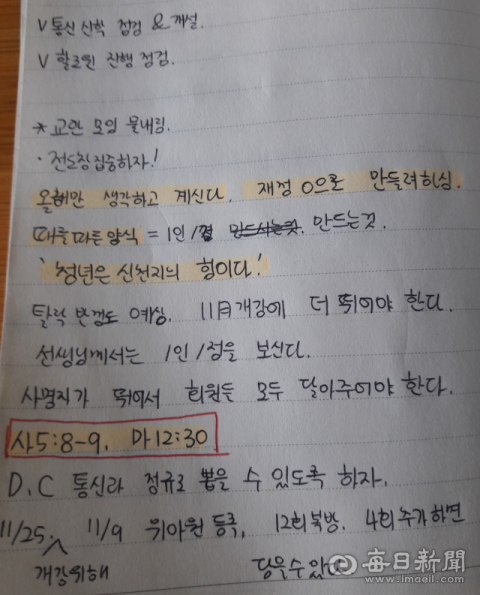 V 통신 신학 점검 & 개설.
V 할로윈 진행 점검.
* 교안 모임 물내림.
· 전도장 집중하자!
올해만 생각하고 계신다. 재정 0으로 만들려하심.
때를 따른 양식 = 1인 1명 만드시는것. 만드는것.
'청년은 신천지의 힘이다!'
탈락 반정도 예상. 11月 개강에 더 뛰어야 한다.
선생님께서는 1인 1점을 보신다.
사명자가 뛰어서 회원들 모두 달아주어야 한다.
사5:8-9, 마12:30
D.C 통신라 정규로 뽑을 수 있도록 하자.
11/25. 11/9 위아원 등록, 12회 북방. 4회 추가하면
개강위해 닫을수있다
每日新聞
www.imaeil.com